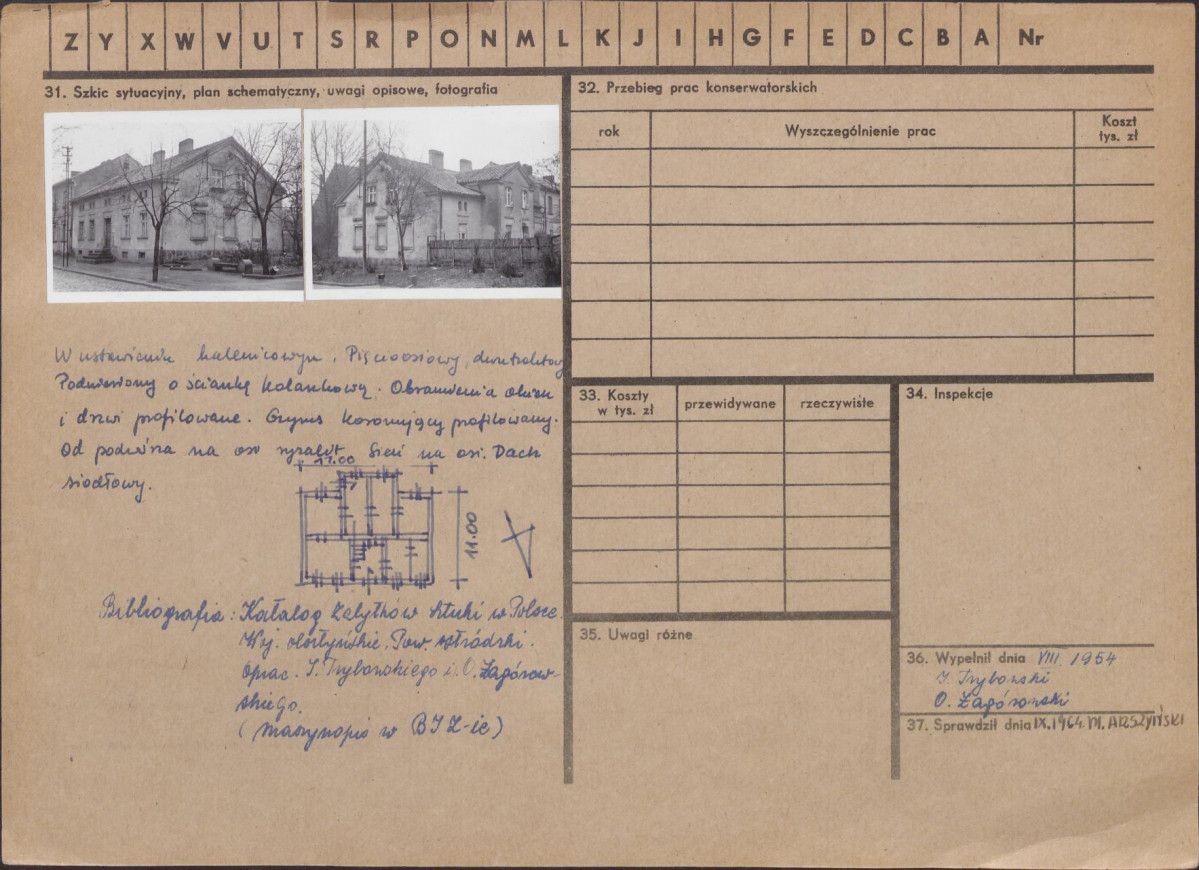 Z Y X W V U T S R P O N M L K J I H G F E D C B A Nr
31. Szkic sytuacyjny, plan schematyczny, uwagi opisowe, fotografia
W ustawieniu kalenicowym. Pięcioosiowy, dwutraktowy
Podniesiony o ściankę kolankową. Obramienia okien
i drzwi profilowane. Gzyms koronujący profilowany.
Od podwórza na osi ryzalit. Sień na osi. Dach
siodłowy.
11.00
11.00
Bibliografia: Katalog Zabytków Sztuki w Polsce.
Woj. olsztyńskie. Pow. ostródzki.
Oprac. J. Trybowskiego i O. Zagórow-
skiego.
(maszynopis w BJZ-ie)
32. Przebieg prac konserwatorskich
rok
Wyszczególnienie prac
Koszt
tys. zł
33. Koszty
w tys. zł
przewidywane
rzeczywiste
34. Inspekcje
35. Uwagi różne
36. Wypełnił dnia VIII. 1954
J. Trybowski
O. Zagórowski
37. Sprawdził dnia IX.1964. M. ARSZYŃSKI